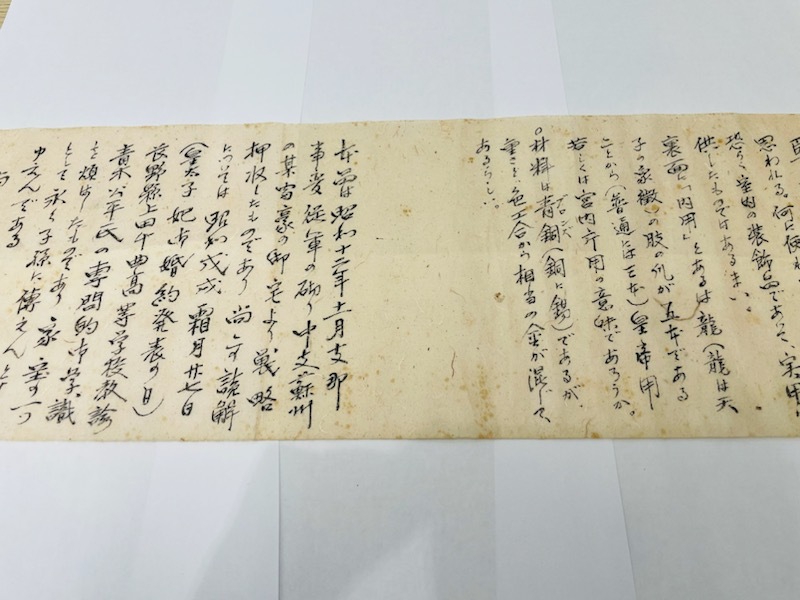 思われる。何に使わ
恐らく室内の装飾品であって、実用
供したものではあるまい。
裏面に「内用」とあるは龍(龍は天
子の象徴)の肢の爪が五本である
ことから(普通には三本)皇帝用
若しくは宮内庁用の意味であろうか。
○材料は青銅(銅に錫)であるが、
ブロンズ
重さと、色工合から相当の金が混じて
あるらしい。
本器は昭和十二年十一月支那
事変従軍の砌り中支蘇州
の某富豪の邸宅より戦略
押収したものであり 尚 解説
については 昭和戊戌 霜月廿七日
(皇太子妃御婚約発表の日)
長野縣上田千曲高等学校教諭
青木 平氏の専門的御学識
を煩はしたものであり 家宝の一つ
として永く子孫に傳えん
ゆえんである